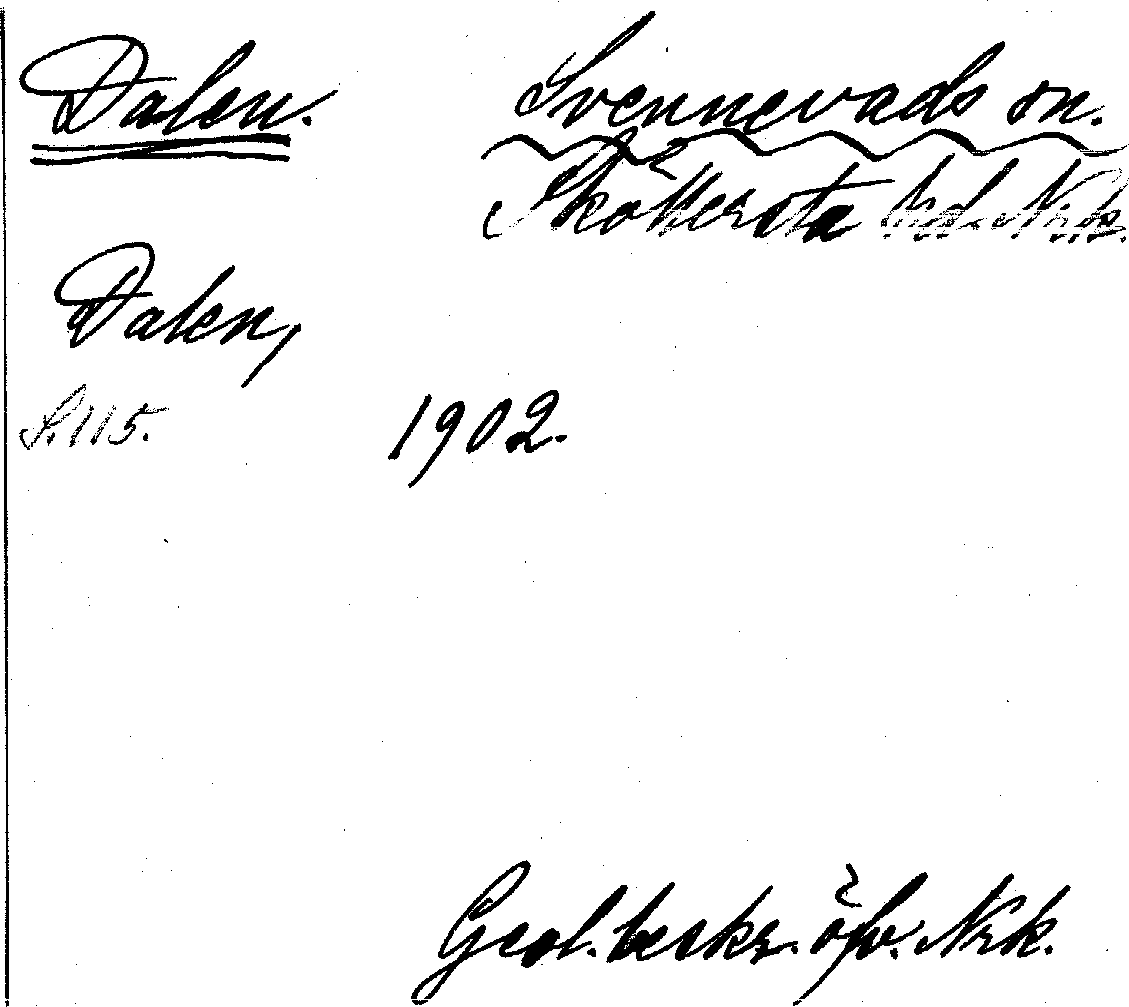 Dalen. Svennevads sn.
Sköllersta hd. Nrk.
Dalen,
S. 115. 1902.
Geol. beskr. öfv. Nrk.